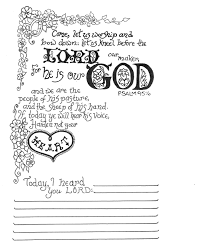 Come, let us worship and
bow down. let us kneel before the
LORD our maker
For he is our GOD
PSALM 95:6
and we are the
people of his pasture,
and the sheep of his hand.
If today ye will hear his voice,
Harden not your
HEART
Today, I heard
You LORD: